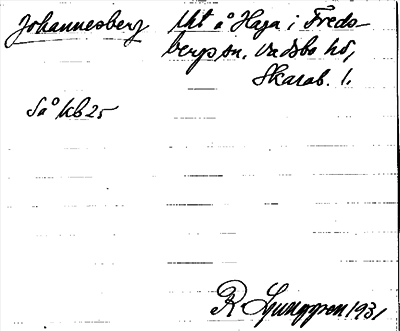 Johannesberg lht å Haga i Freds-
bergs sn. Vadsbo hd,
Skarab. l.
Så kb 25
R. Ljunggren 1931